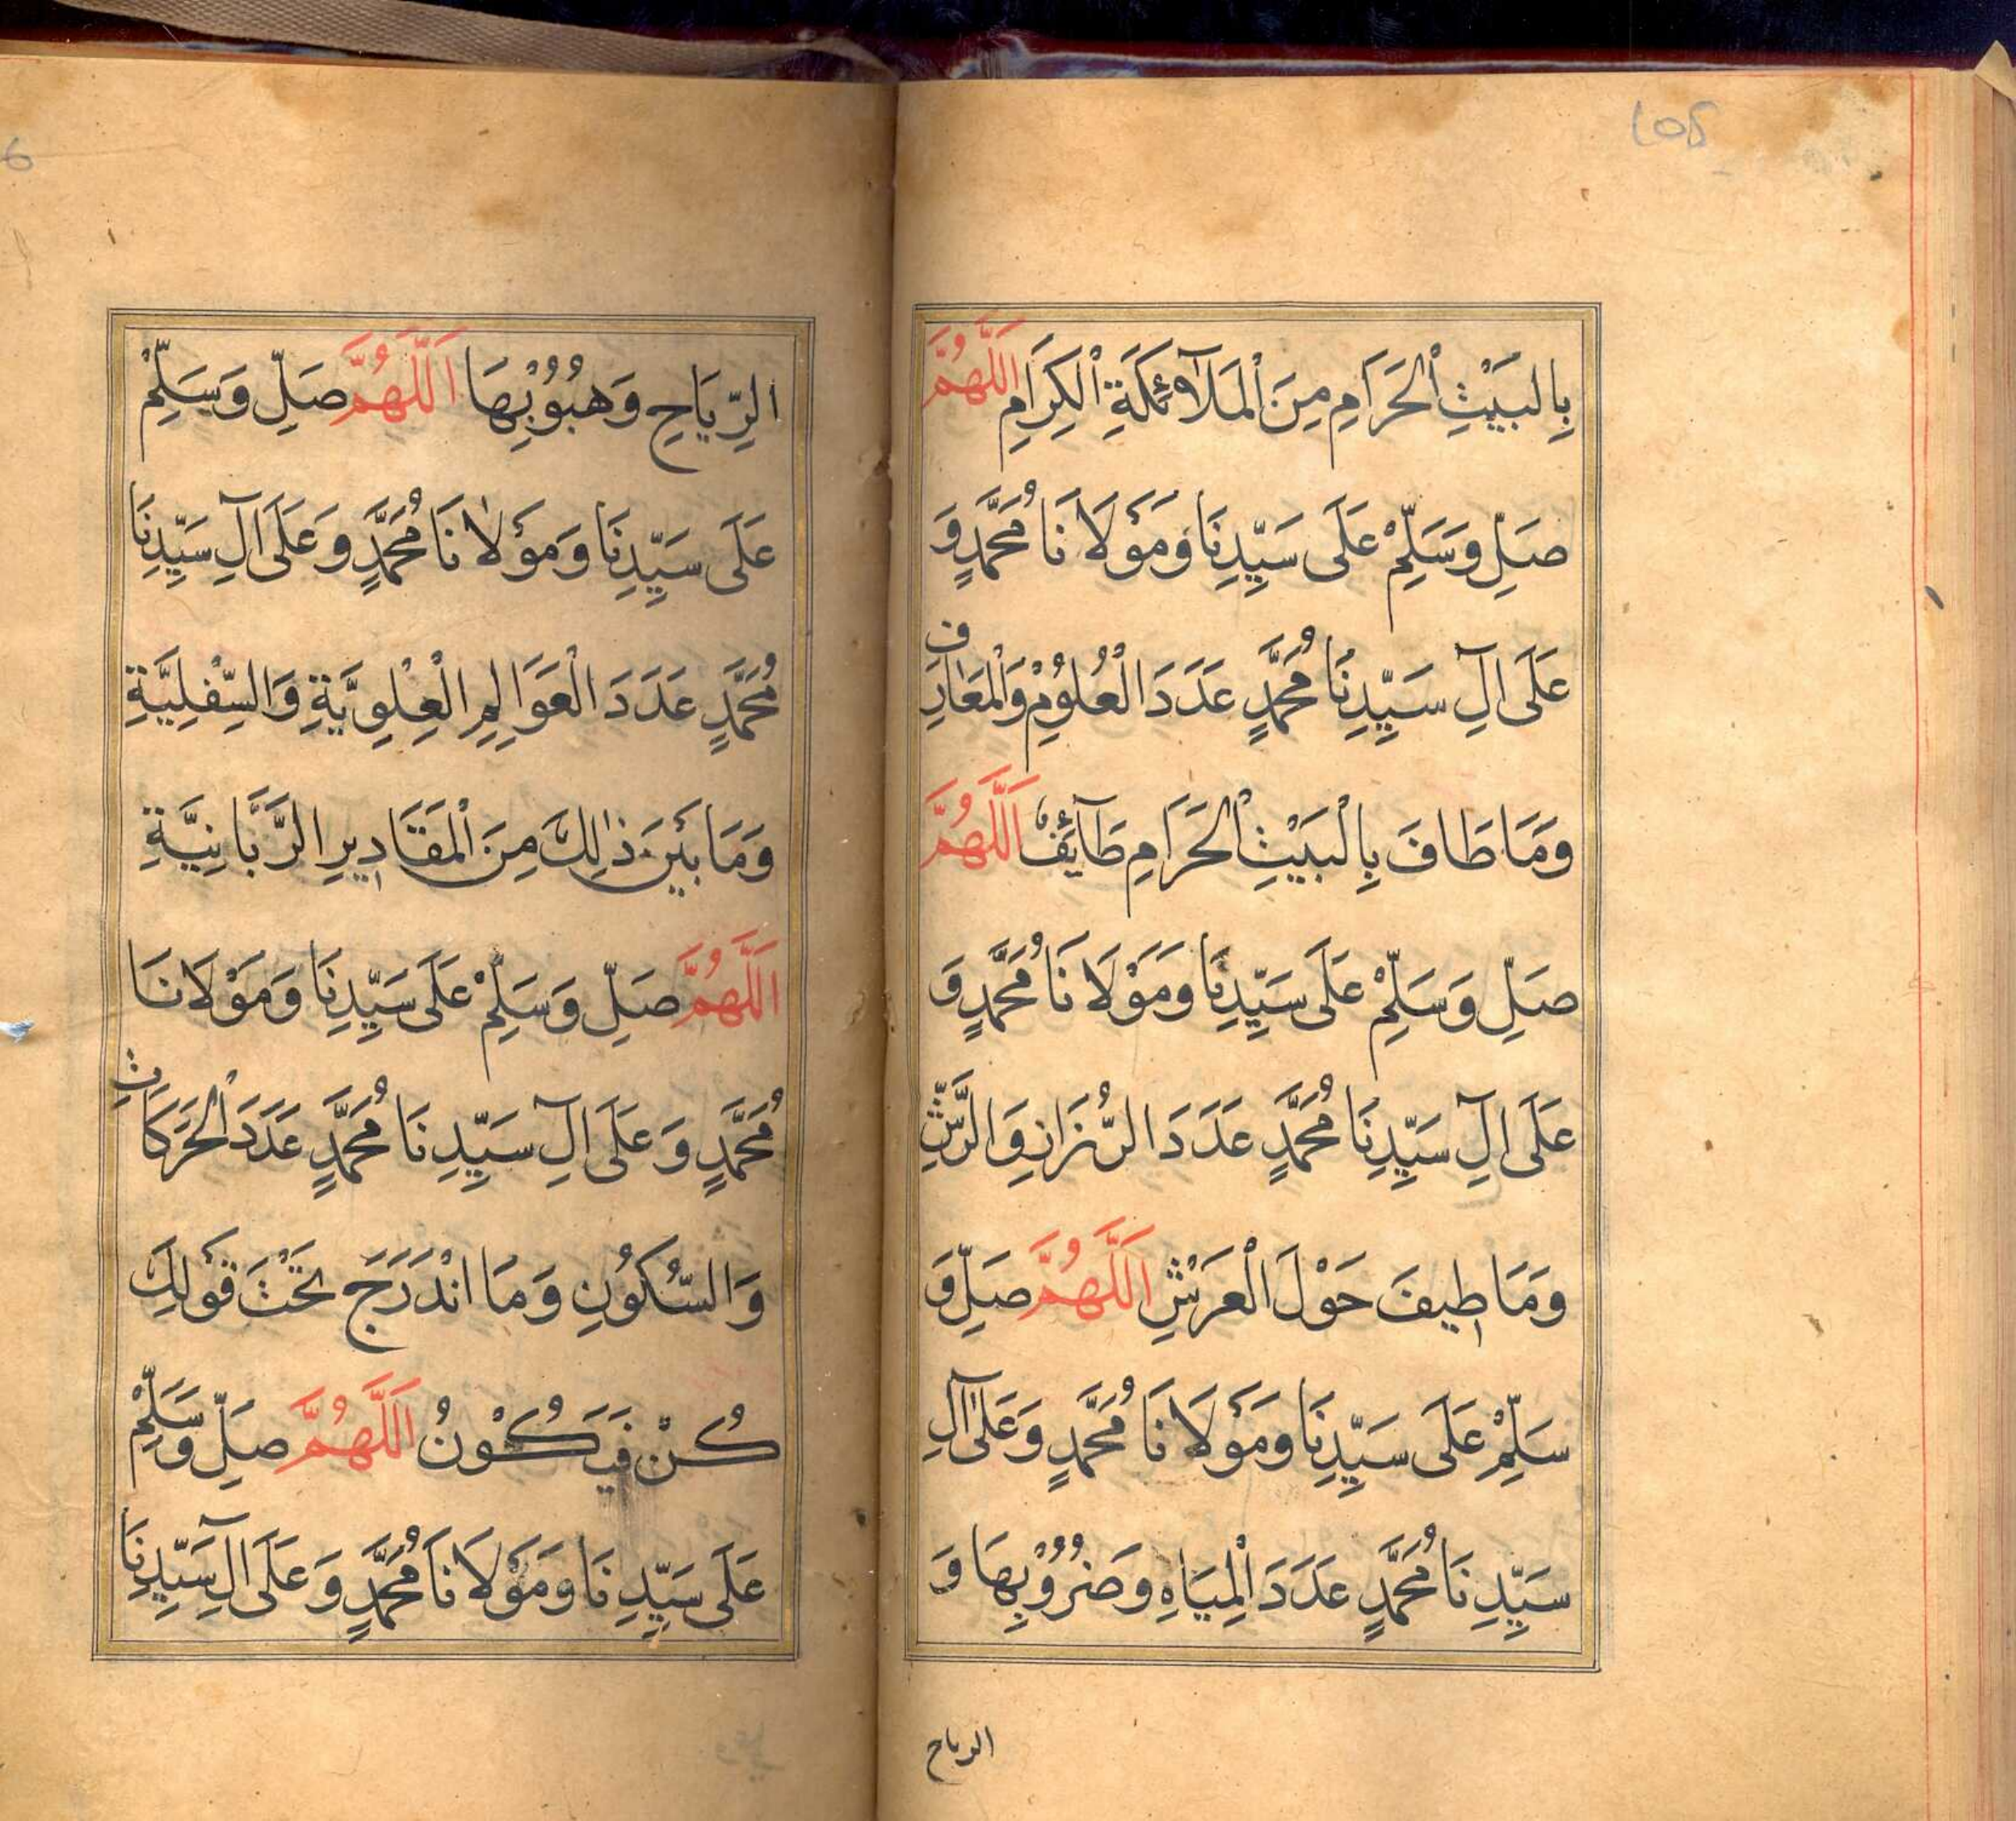 105
بِالبَيْتِ الْحَرَامِ مِنَ الْمَلَآئِكَةِ الْكِرَامِ اَللَّهُمَّ
صَلِّ وَسَلِّمْ عَلَى سَيِّدِنَا وَمَوْلَانَا مُحَمَّدٍ وَ
عَلَى آلِ سَيِّدِنَا مُحَمَّدٍ عَدَدَ الْعُلُوْمِ وَالْمَعَارِفِ
وَمَا طَافَ بِالْبَيْتِ الْحَرَامِ طَآئِفٌ اَللَّهُمَّ
صَلِّ وَسَلِّمْ عَلَى سَيِّدِنَا وَمَوْلَانَا مُحَمَّدٍ وَ
عَلَى آلِ سَيِّدِنَا مُحَمَّدٍ عَدَدَ وَالرَّشِّ
وَمَا طِيفَ حَوْلَ الْعَرْشِ اَللَّهُمَّ صَلِّ وَ
سَلِّمْ عَلَى سَيِّدِنَا وَمَوْلَانَا مُحَمَّدٍ وَعَلَى آلِ
سَيِّدِنَا مُحَمَّدٍ عَدَدَ الْمِيَاهِ وَضُرُوْبِهَا وَ
الرياح
6
الرِّيَاحِ وَهُبُوْبِهَا اَللَّهُمَّ صَلِّ وَسَلِّمْ
عَلَى سَيِّدِنَا وَمَوْلَانَا مُحَمَّدٍ وَعَلَى آلِ سَيِّدِنَا
مُحَمَّدٍ عَدَدَ الْعَوَالِمِ الْعِلْوِيَّةِ وَالسِّفْلِيَّةِ
وَمَا بَيْنَ ذٰلِكَ مِنَ الْمَقَادِيرِ الرَّبَّانِيَّةِ
اَللَّهُمَّ صَلِّ وَسَلِّمْ عَلَى سَيِّدِنَا وَمَوْلَانَا
مُحَمَّدٍ وَعَلَى آلِ سَيِّدِنَا مُحَمَّدٍ عَدَدَ الْحَرَكَاتِ
وَالسُّكُوْنِ وَمَا انْدَرَجَ تَحْتَ قَوْلِكَ
كُنْ فَيَكُوْنُ اَللَّهُمَّ صَلِّ وَسَلِّمْ
عَلَى سَيِّدِنَا وَمَوْلَانَا مُحَمَّدٍ وَعَلَى آلِ سَيِّدِنَا